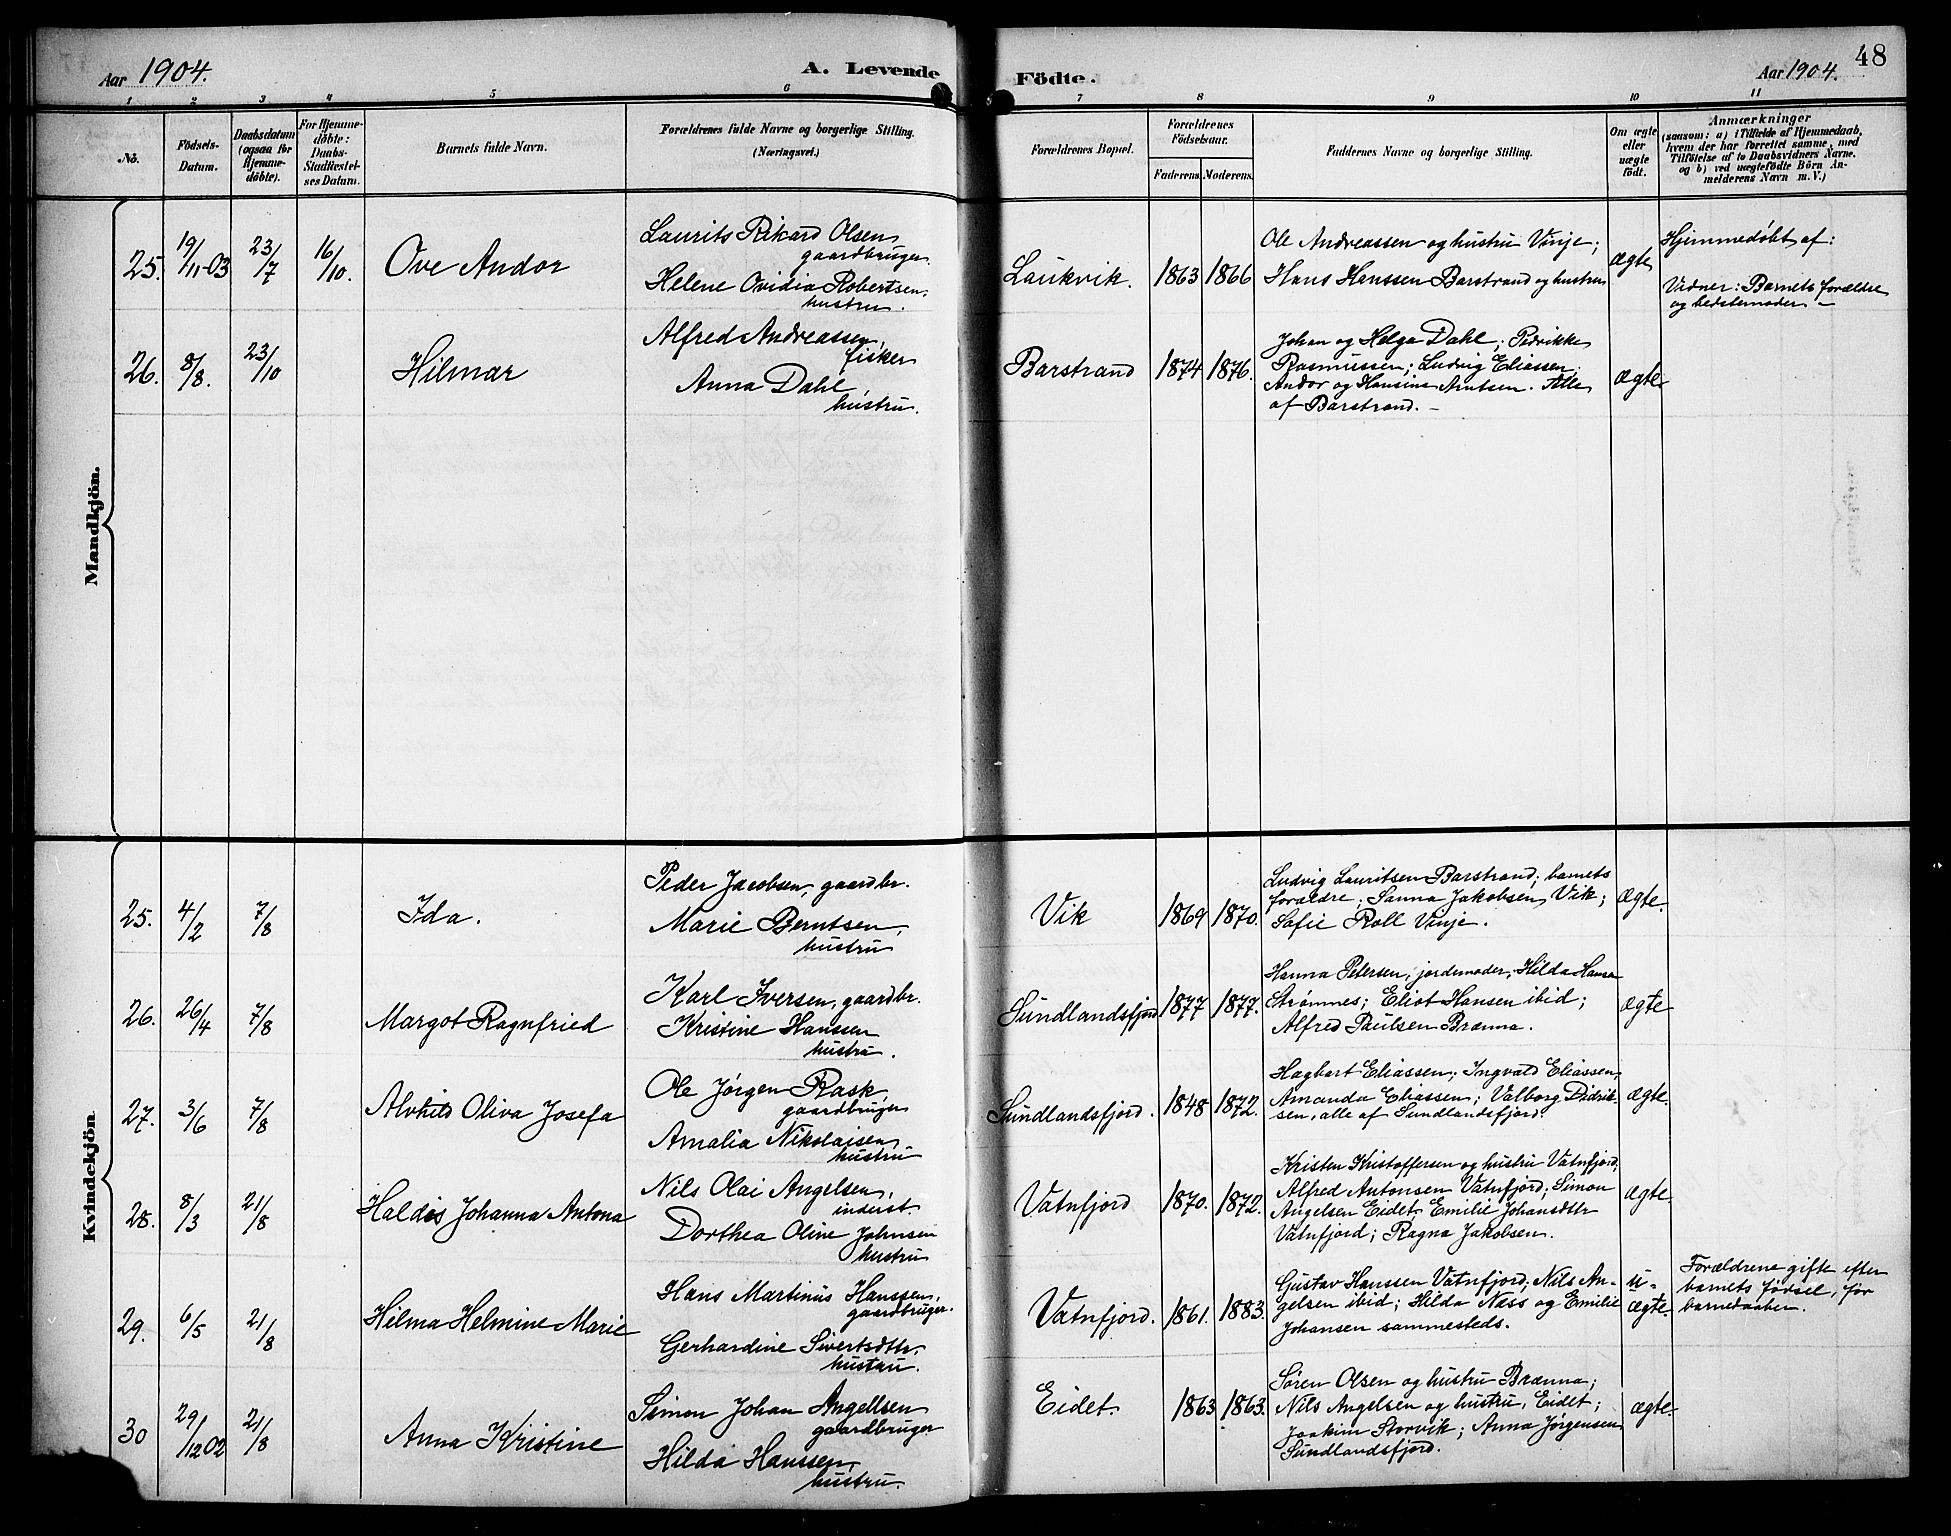 Aar 1904.
A. Levende
Födte.
Aar 1904.
48
1 2 3 4 5 6 7 8 9 10 11
No.
Födsels-
Datum.
Daabsdatum
(ogsaa for
Hjemme-
döbte).
For Hjemme-
döbte:
Daabs-
Stadfæstel-
ses Datum.
Barnets fulde Navn.
Forældrenes fulde Navne og borgerlige Stilling.
(Næringsvei.)
Forældrenes Bopæl.
Forældrenes
Födselsaar.
Faderens. Moderens.
Faddernes Navne og borgerlige Stilling.
Om ægte
eller
uægte
født.
Anmærkninger
(saasom: a) i Tilfælde af Hjemmedaab,
hvem der har forrettet samme, med
Tilföielse af to Daabsvidners Navne.
og b) ved uægtefödte Börn An-
melderens Navn m. V.)
Mandkjön.
25.
19/11-03
23/7
16/10.
Ove Andor
Laurits Rikard Olsen,
gaardbruger.
Helene Ovidia Robertsen,
hustru.
Laukvik.
1863
1866
Ole Andreassen og hustru Vinje;
Hans Hanssen Barstrand og hustru
ægte
Hjemmedøbt af:
Vidner: Barnets forældre
og bedstemoder –
26.
8/8.
23/10
Hilmar
Alfred Andreassen,
fisker
Anna Dahl,
hustru.
Barstrand
1874
1876.
Johan og Helga Dahl; Pedrikke
Rasmussen; Ludvig Eliassen;
Andor og Hansine Arntsen. Alle
af Barstrand. –
ægte
Kvindekjön.
25.
4/2
7/8
Ida.
Peder Jacobsen, gaardbr.
Marie Berntsen,
hustru
Vik
1869
1870.
Ludvig Lauritsen Barstrand; barnets
forældre; Sanna Jakobsen Vik;
Sofie Roll Vinje.
Ægte.
26.
26/4
7/8
Margot Ragnfried
Karl Iversen, gaardbr.
Kristine Hanssen
hustru.
Sundlandsfjord
1877
1877.
Hanna Petersen, jordemoder, Hilda Hansen
Strømnes; Eliot Hansen ibid;
Alfred Paulsen Brænna.
ægte
27.
3/6
7/8
Alvhild Oliva Josefa
Ole Jørgen Rask,
gaardbruger
Amalia Nikolaisen
hustru
Sundlandsfjord.
1848
1872.
Hagbart Eliassen; Ingvald Eliassen,
Amanda Eliassen; Valborg Didrik-
sen, alle af Sundlandsfjord.
ægte.
28.
8/3
21/8
Haldis Johanna Antona
Nils Olai Angelsen,
inderst
Dorthea Oline Johnsen
hustru
Vatnfjord
1870.
1872.
Kristen Kristoffersen og hustru Vatnfjord,
Alfred Antonsen Vatnfjord; Simon
Angelsen Eidet, Emilie Johansdtr
Vatnfjord; Ragna Jakobsen.
ægte.
29.
6/5
21/8
Hilma Helmine Marie
Hans Martinus Hanssen,
gaardbruger.
Gerhardine Sivertsdtr,
hustru.
Vatnfjord.
1861.
1883.
Gustav Hanssen Vatnfjord; Nils An-
gelsen ibid; Hilda Næss og Emilie
Johansen sammesteds.
u-
ægte.
Forældrene gifte efter
barnets fødsel, før
barnedaaben.
30
29/12 02
21/8
Anna Kristine
Simon Johan Angellsen
gaardbruger
Hilda Hanssen,
hustru.
Eidet.
1863
1863.
Søren Olsen og hustru Brænna;
Nils Angelsen og hustru, Eidet;
Joakim Storvik; Anna Jørgensen
Sundlandsfjord.
ægte.